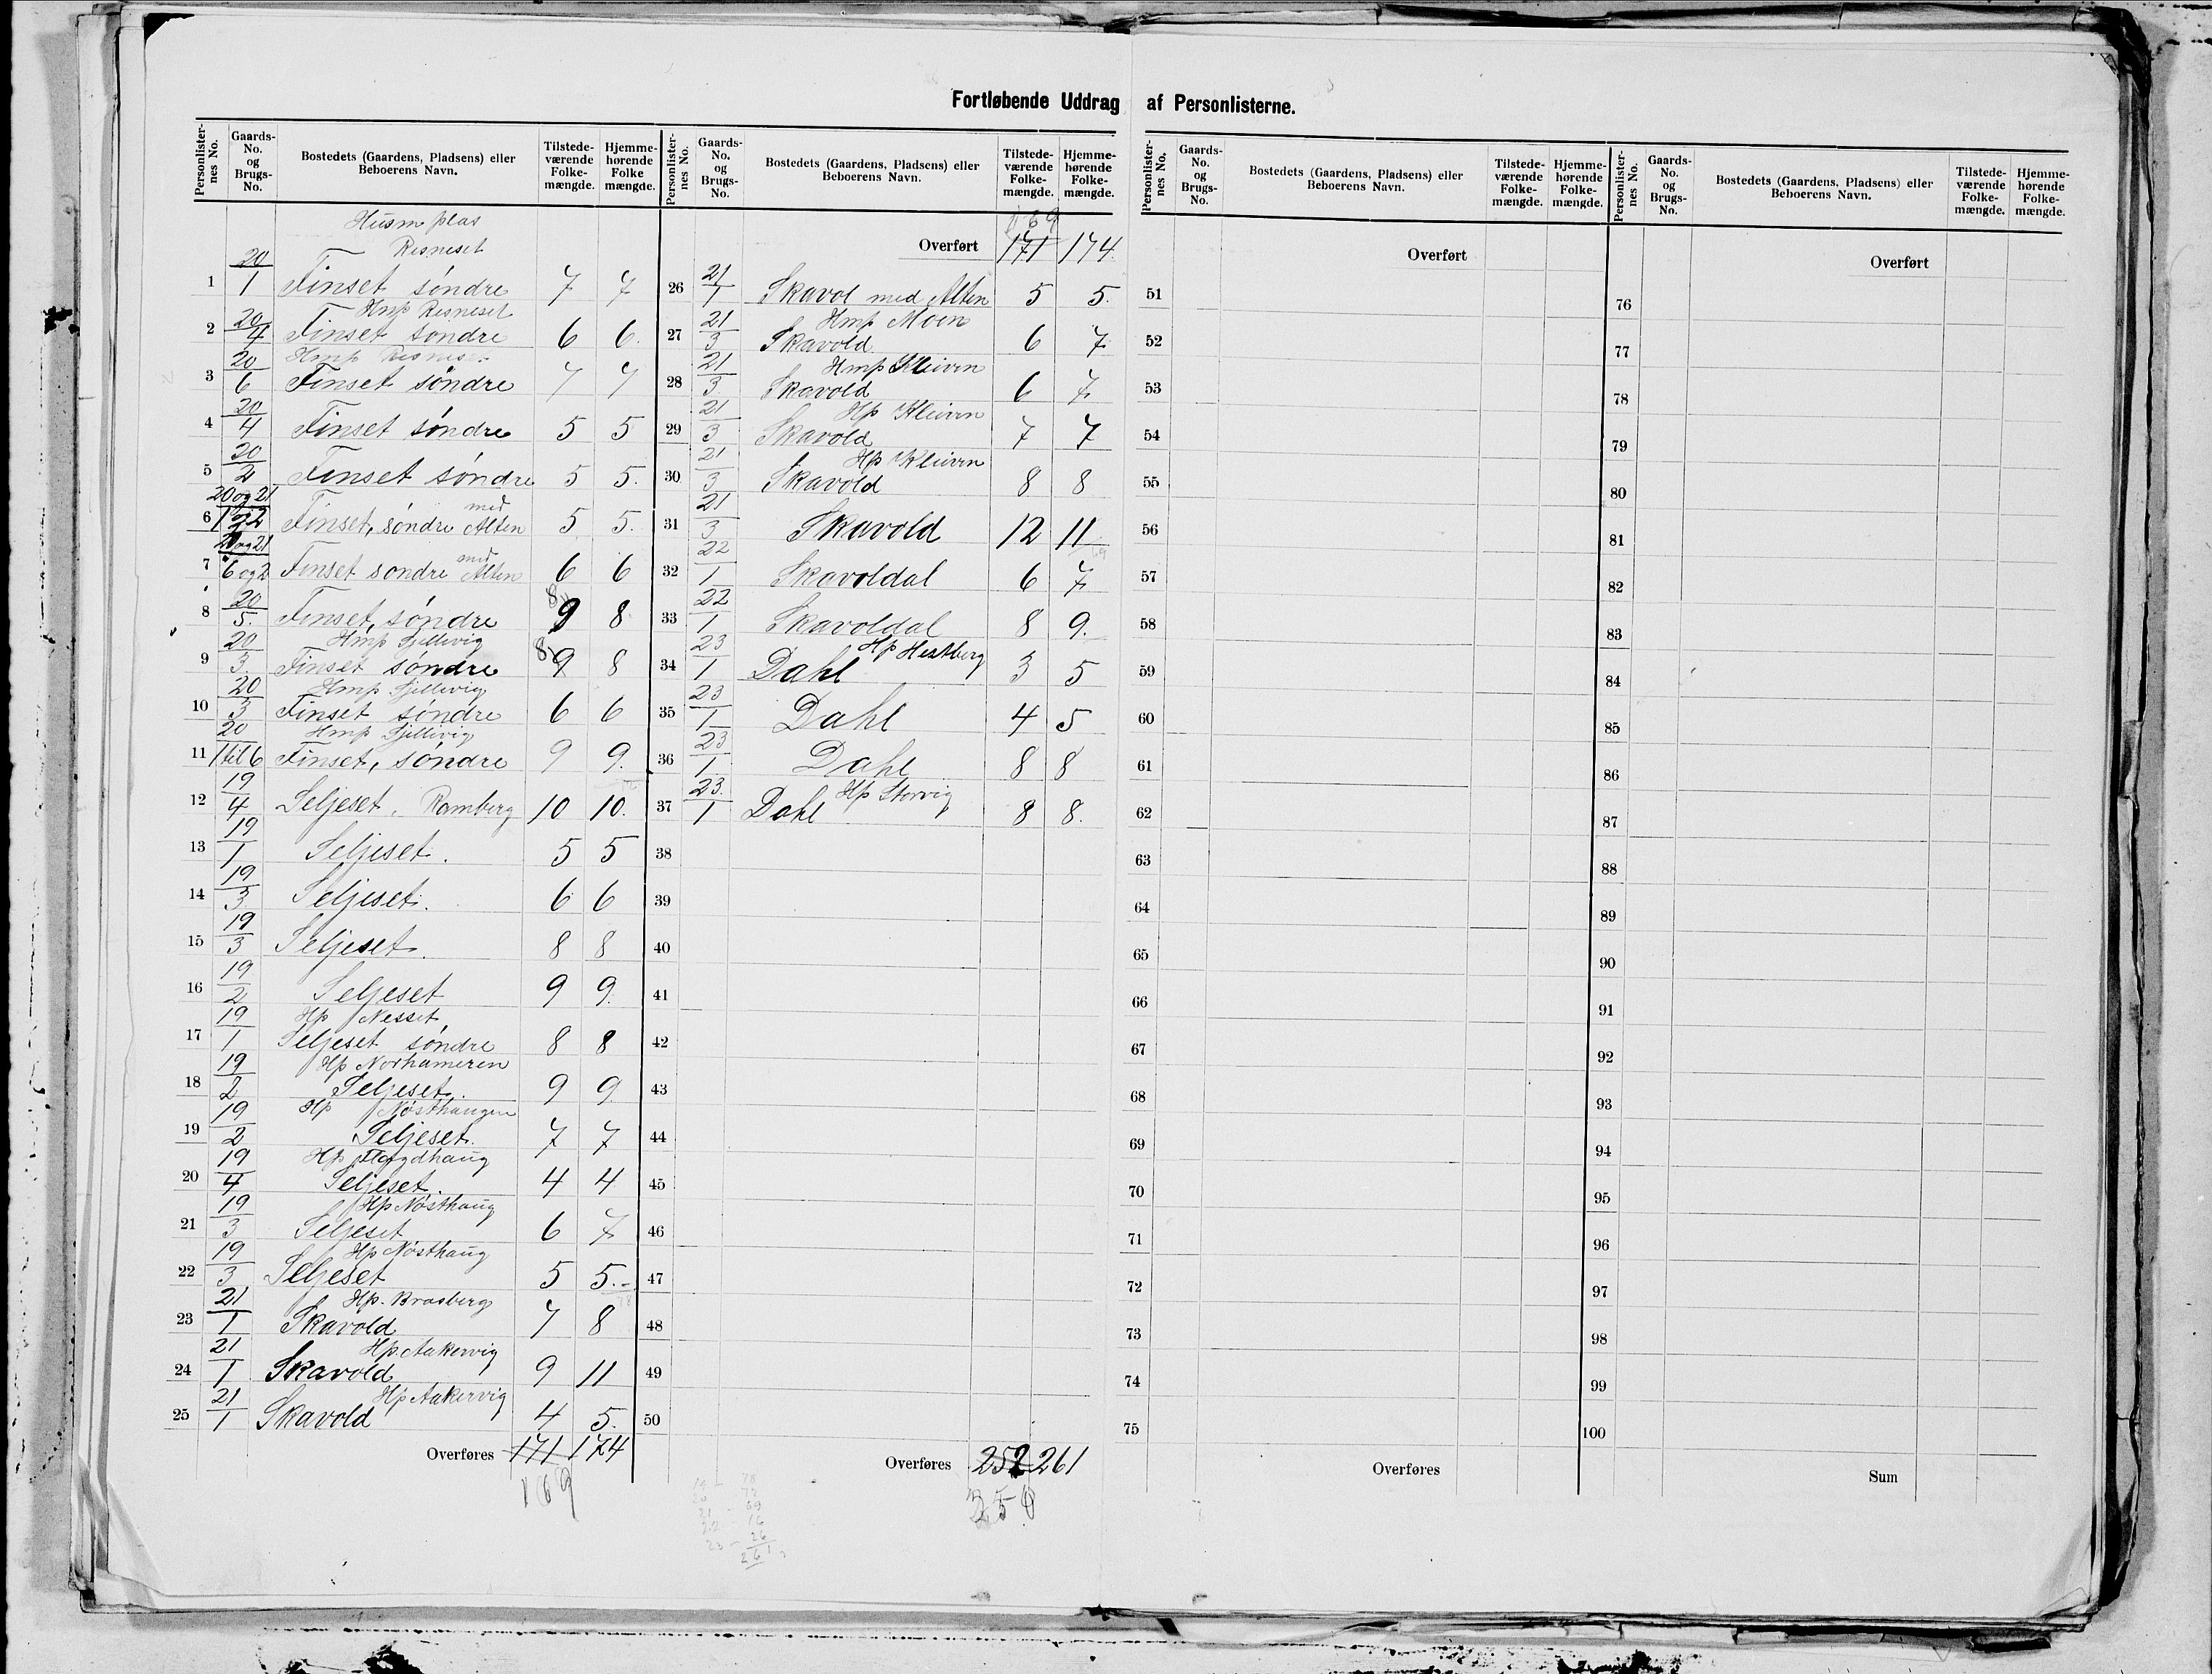 Fortløbende Uddrag af Personlisterne.
Personlister-nes No. | Gaards-No. og Brugs-No. | Bostedets (Gaardens, Pladsens) eller Beboerens Navn. | Tilstede-værende Folke-mængde. | Hjemme-hørende Folke mængde.
Husmplas
Risneset
1 | 20/1 | Finset søndre | 7 | 7
Hmp Risneset
2 | 20/4 | Finset søndre | 6 | 6.
Hmp Risneset
3 | 20/6 | Finset søndre | 7 | 7
4 | 20/4 | Finset søndre | 5 | 5
5 | 20/2 | Finset søndre | 5 | 5.
6 | 20 og 21/1 og 2 | Finset, søndre med Alten | 5 | 5.
7 | 20 og 21/6 og 2 | Finset søndre med Alten | 6 | 6
8 | 20/5. | Finset, søndre | 9 8 | 8
Hmp Fjellevig
9 | 20/3. | Finset søndre | 9 8 | 8
Hmp Fjellevig
10 | 20/3 | Finset søndre | 6 | 6
Hmp Fjellevig
11 | 20/1 til 6 | Finset, søndre | 9 | 9.
12 | 19/4 | Seljeset, Ramberg | 10 | 10.
13 | 19/1 | Seljeset. | 5 | 5
14 | 19/3 | Seljeset. | 6 | 6
15 | 19/3 | Seljeset. | 8 | 8
16 | 19/2 | Seljeset | 9 | 9.
Hp Nesset
17 | 19/1 | Seljeset søndre | 8 | 8
Hp Norhameren
18 | 19/2 | Seljeset. | 9 | 9
Hp Nøsthaugen
19 | 19/2 | Seljeset. | 7 | 7
Hp
20 | 19/4 | Seljeset. | 4 | 4
Hp Nøsthaug
21 | 19/3 | Seljeset | 6 | 7
Hp Nøsthaug
22 | 19/3 | Seljeset | 5 | 5.
Hp. Brasberg
23 | 21/1 | Skavold | 7 | 8
Hp. Aakervig
24 | 21/1 | Skavold | 9 | 11
Hp Aakervig
25 | 21/1 | Skavold | 4 | 5.
Overføres 171 174
169
Personlister-nes No. | Gaards-No. og Brugs-No. | Bostedets (Gaardens, Pladsens) eller Beboerens Navn. | Tilstede-værende Folke-mængde. | Hjemme-hørende Folke-mængde.
169
Overført 171 174.
26 | 21/1 | Skavol med Alten | 5 | 5.
Hmp Moen
27 | 21/3 | Skavold | 6 | 7
Hmp Kleiven
28 | 21/3. | Skavold | 6 | 7
Hp Kleiven
29 | 21/3 | Skavold | 7 | 7
Hp Kleiven
30 | 21/3 | Skavold | 8 | 8
31 | 21/3 | Skavold | 12 | 11
32 | 22/1 | Skavoldal | 6 | 7
33 | 22/1 | Skavoldal | 8 | 9.
Hp Hestberg
34 | 23/1 | Dahl | 3 | 5
35 | 23/1 | Dahl | 4 | 5
36 | 23/1 | Dahl | 8 | 8
Hp Storvig
37 | 23./1 | Dahl | 8 | 8.
38
39
40
41
42
43
44
45
46
47
48
49
50
Overføres 252 261
250
19 - 78
20 - 72
21 - 69
22 - 16
23 - 26
261
Personlister-nes No. | Gaards-No. og Brugs-No. | Bostedets (Gaardens, Pladsens) eller Beboerens Navn. | Tilstede-værende Folke-mængde. | Hjemme-hørende Folke-mængde.
Overført
51
52
53
54
55
56
57
58
59
60
61
62
63
64
65
66
67
68
69
70
71
72
73
74
75
Overføres
Personlister-nes No. | Gaards-No. og Brugs-No. | Bostedets (Gaardens, Pladsens) eller Beboerens Navn. | Tilstede-værende Folke-mængde. | Hjemme-hørende Folke-mængde.
Overført
76
77
78
79
80
81
82
83
84
85
86
87
88
89
90
91
92
93
94
95
96
97
98
99
100
Sum